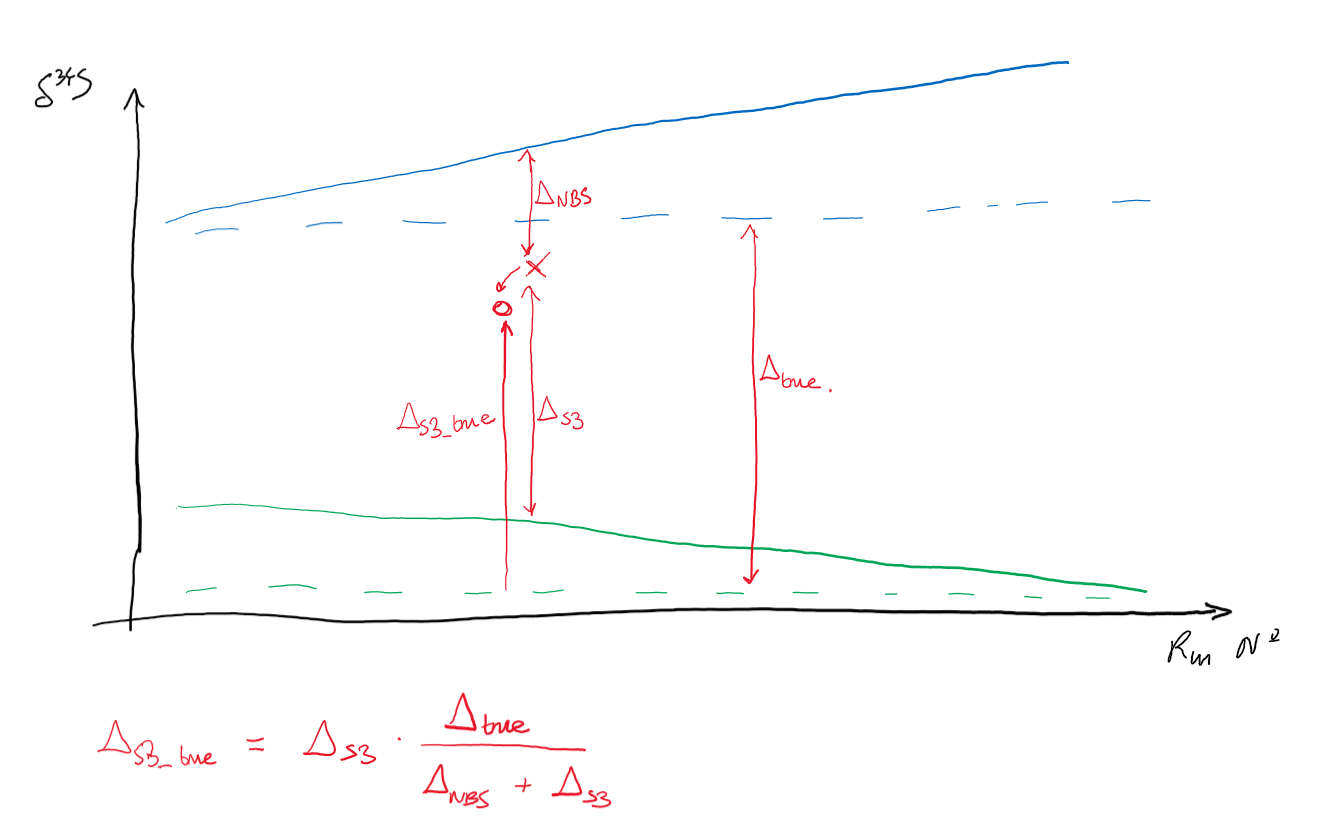 δ³⁴S
Δ_NBS
Δ_true.
Δ_S3_true
Δ_S3
Run Nº
Δ_S3_true = Δ_S3 · Δ_true / (Δ_NBS + Δ_S3)